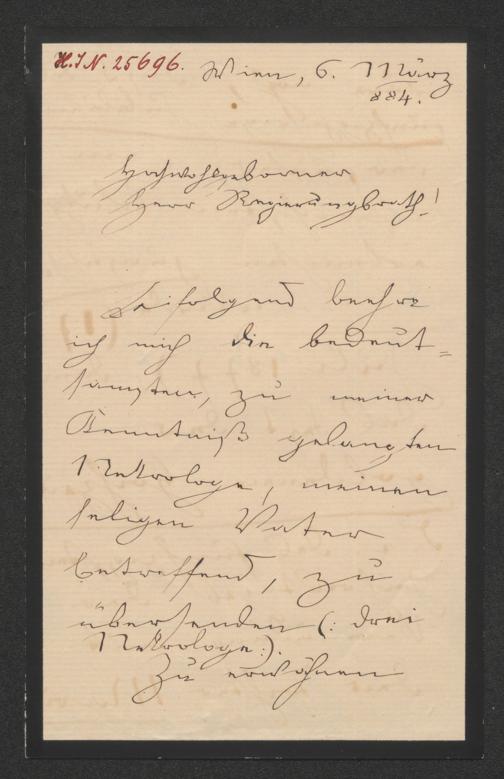 H.I.N. 25696.
Wien, 6. März
884.
Hochwohlgeborner
Herr Regierungsrath!
Beifolgend beehre
ich mich die bedeut=
samsten, zu meiner
Kenntniß gelangten
Nekrologe, meinen
seligen Vater
betreffend, zu
übersenden (: drei
Nekrologe:).
Zu erwähnen